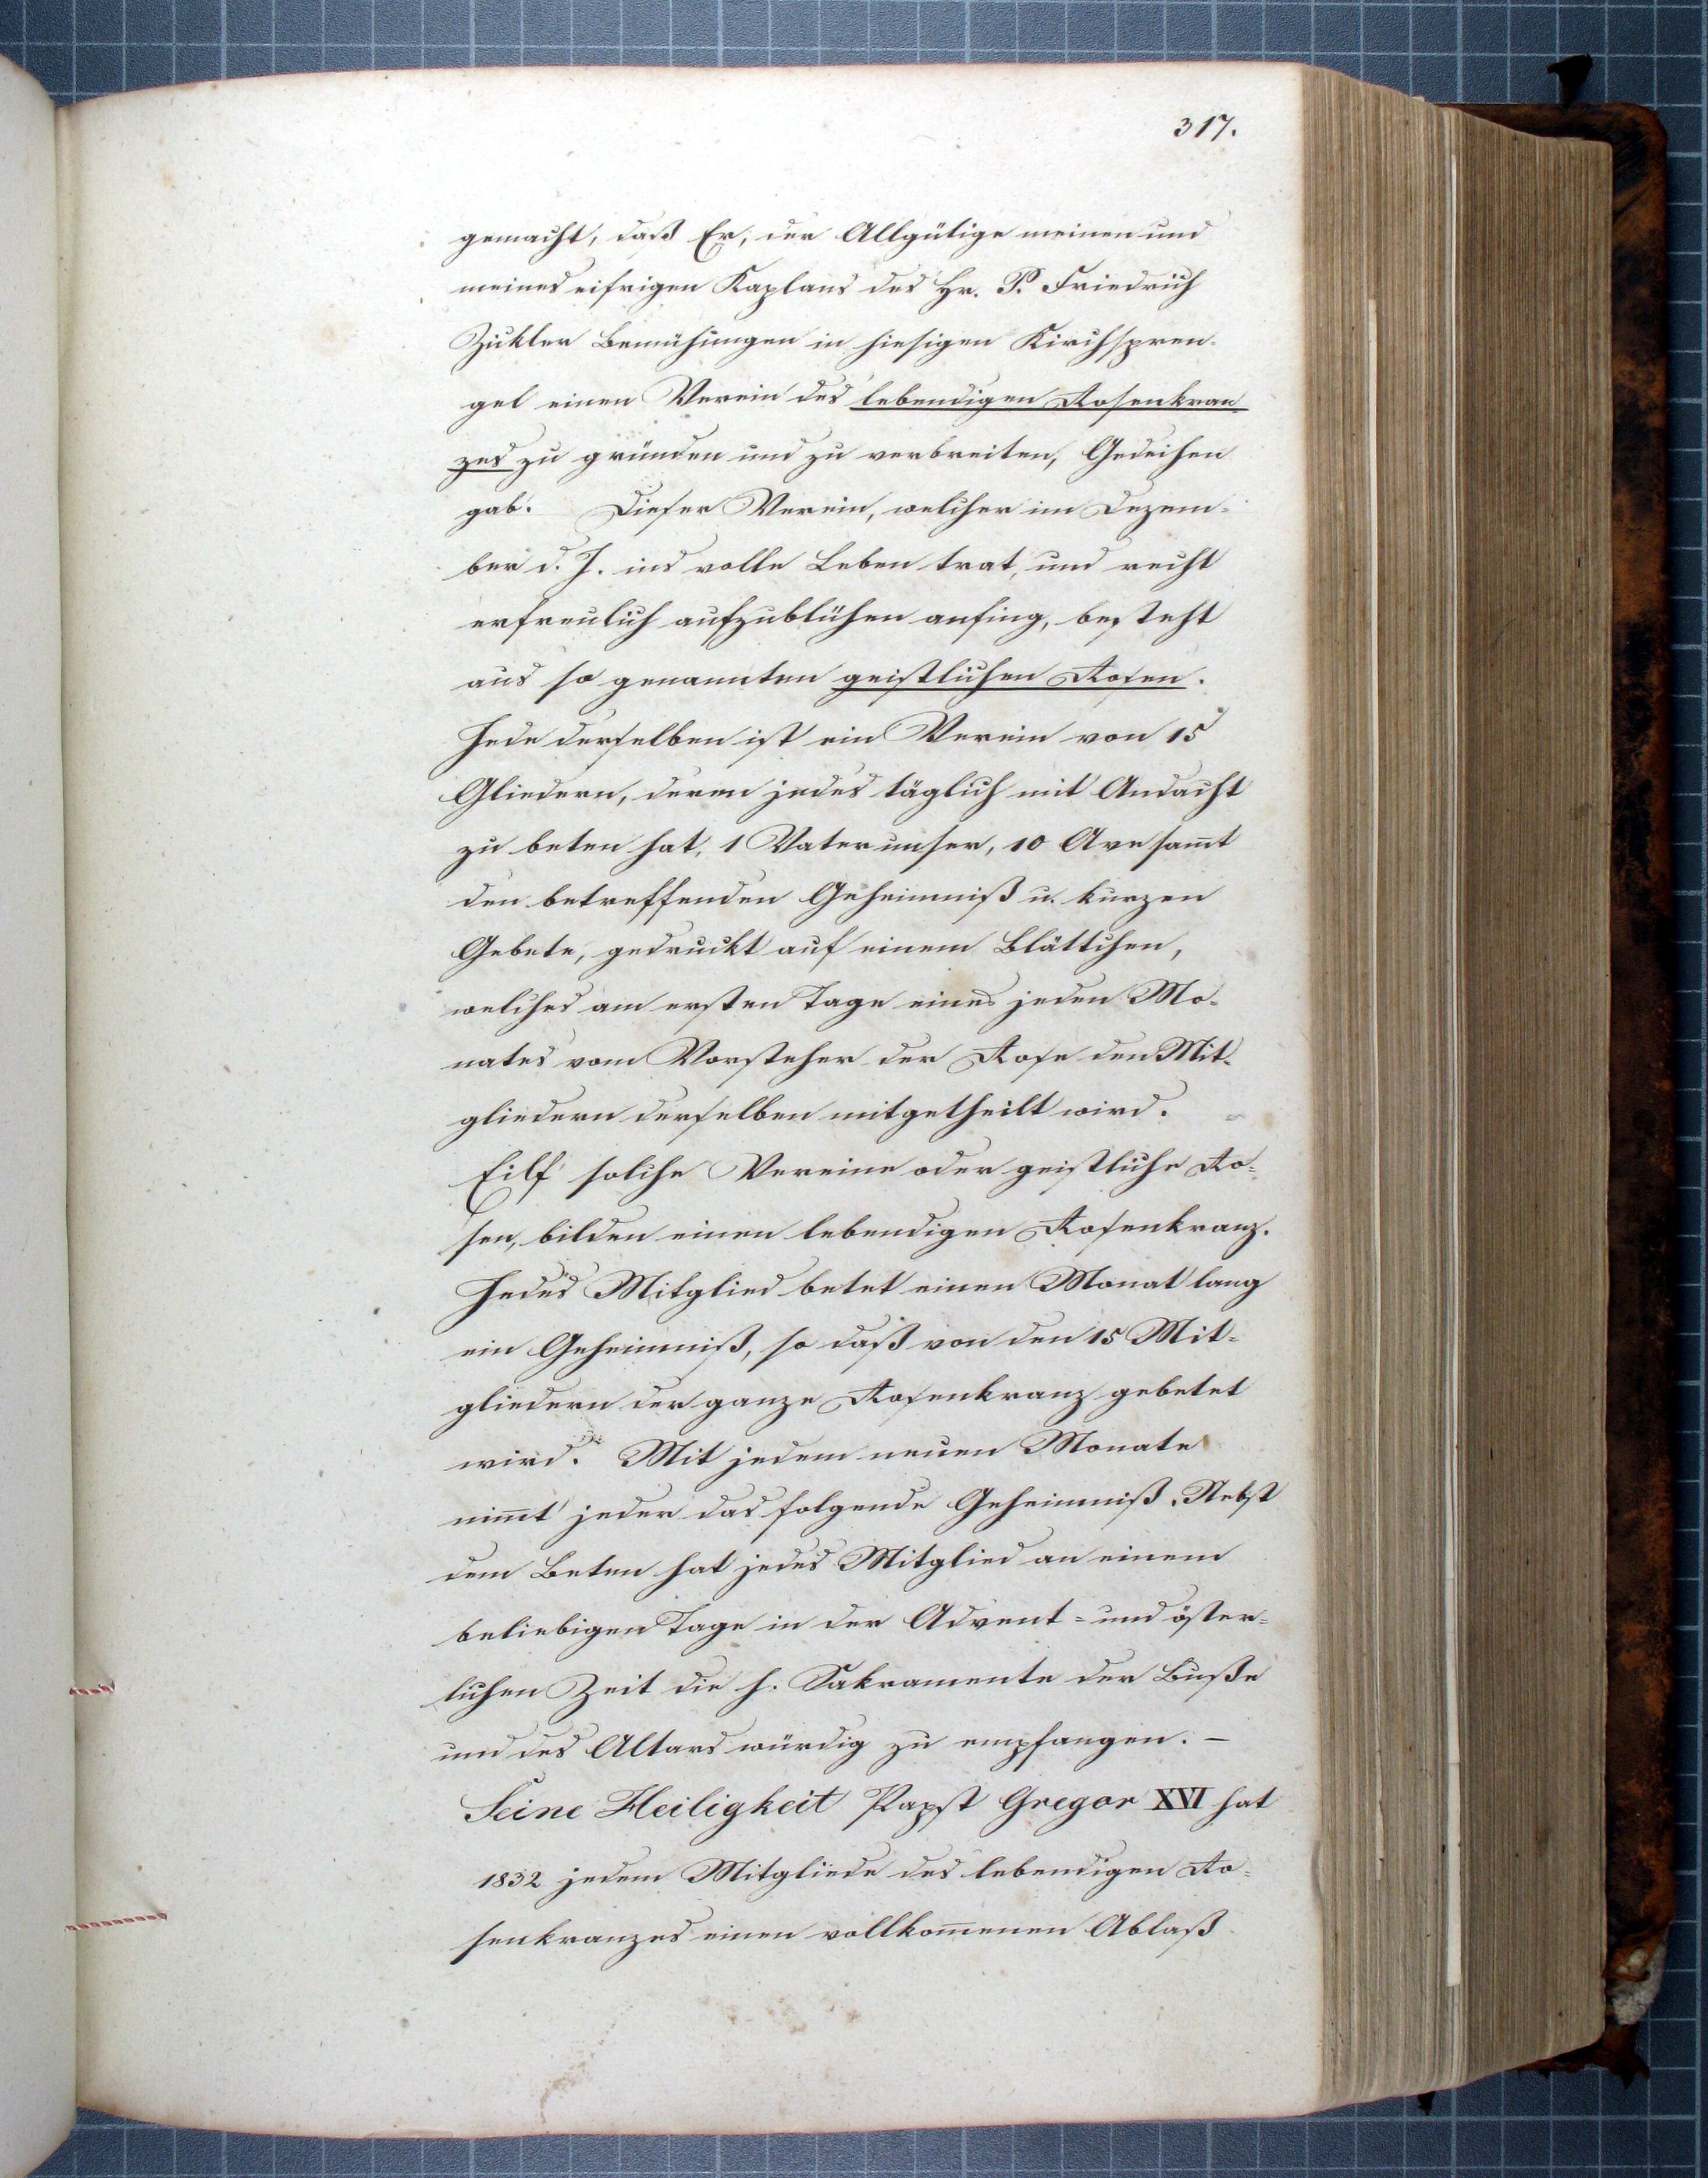 317.
gemacht, daß Er, der Allgütige meinen und
meines eifrigen Kaplans des Hr. P. Friedrich
Zükler Bemühungen in hiesigen Kirchspren-
gel einen Verein des lebendigen Rosenkran-
zes zu gründen und zu verbreiten, Gedeihen
gab. Dieser Verein, welcher im Dezem-
ber d. J. ins volle Leben trat, und recht
erfreulich aufzublühen anfing, besteht
aus so genannten geistlichen Rosen.
Jede derselben ist ein Verein von 15
Gliedern, deren jedes täglich mit Andacht
zu beten hat, 1 Vater unser, 10 Ave sam̄t
den betreffenden Geheimniß u. kurzen
Gebete, gedruckt auf einem Blättchen,
welches am ersten Tage eines jeden Mo-
nates vom Vorsteher der Rose den Mit-
gliedern derselben mitgetheilt wird.
Eilf solche Vereine oder geistliche Ro-
sen, bilden einen lebendigen Rosenkranz.
Jedes Mitglied betet einen Monat lang
ein Geheimniß, so daß von den 15 Mit=
gliedern der ganze Rosenkranz gebetet
wird. Mit jedem neuen Monate
nim̄t jeder das folgende Geheimniß. Nebst
dem Beten hat jedes Mitglied an einem
beliebigen Tage in der Advent= und öster=
lichen Zeit die h. Sakramente der Buße
und des Altars würdig zu empfangen. –
Seine Heiligkeit Papst Gregor XVI hat
1832 jedem Mitgliede des lebendigen Ro=
senkranzes einen vollkom̄enen Ablaß